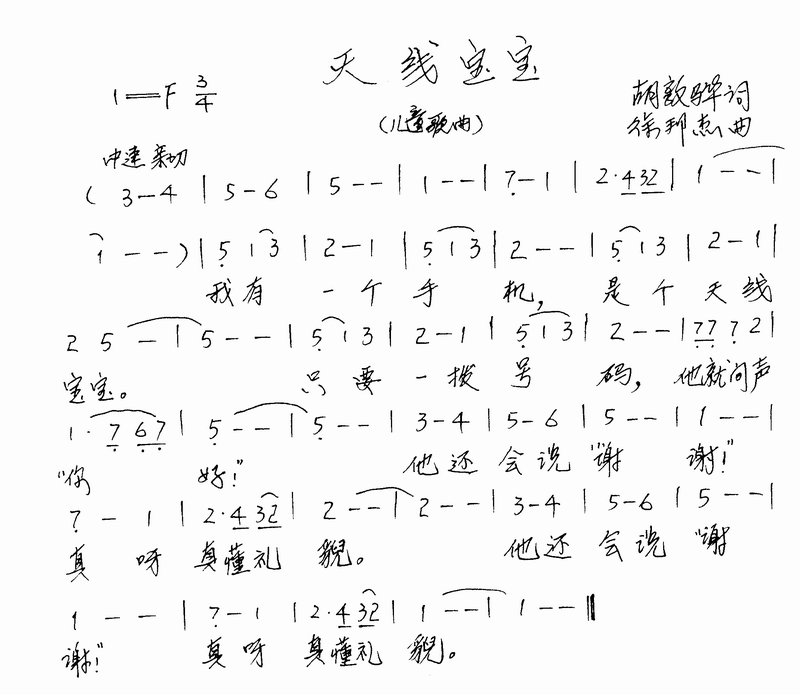 天线宝宝
1=F 3/4
(儿童歌曲)
胡敦骅词
徐邦杰曲
中速 亲切
( 3 - 4 | 5 - 6 | 5 - - | 1 - - | 7 - 1 | 2 · 4 3 2 | 1 - - |
1 - - ) | 5 1 3 | 2 - 1 | 5 1 3 | 2 - - | 5 1 3 | 2 - 1 |
我有 一个手 机, 是个天线
2 5 - | 5 - - | 5 1 3 | 2 - 1 | 5 1 3 | 2 - - | 7 7 7 2 |
宝宝。 只要一拨号 码, 他就问声
1 · 7 6 7 | 5 - - | 5 - - | 3 - 4 | 5 - 6 | 5 - - | 1 - - |
"你 好!" 他还会说"谢 谢!"
7 - 1 | 2 · 4 3 2 | 2 - - | 2 - - | 3 - 4 | 5 - 6 | 5 - - |
真呀真懂礼貌。 他还会说"谢
1 - - | 7 - 1 | 2 · 4 3 2 | 1 - - | 1 - - ‖
谢!" 真呀真懂礼貌。